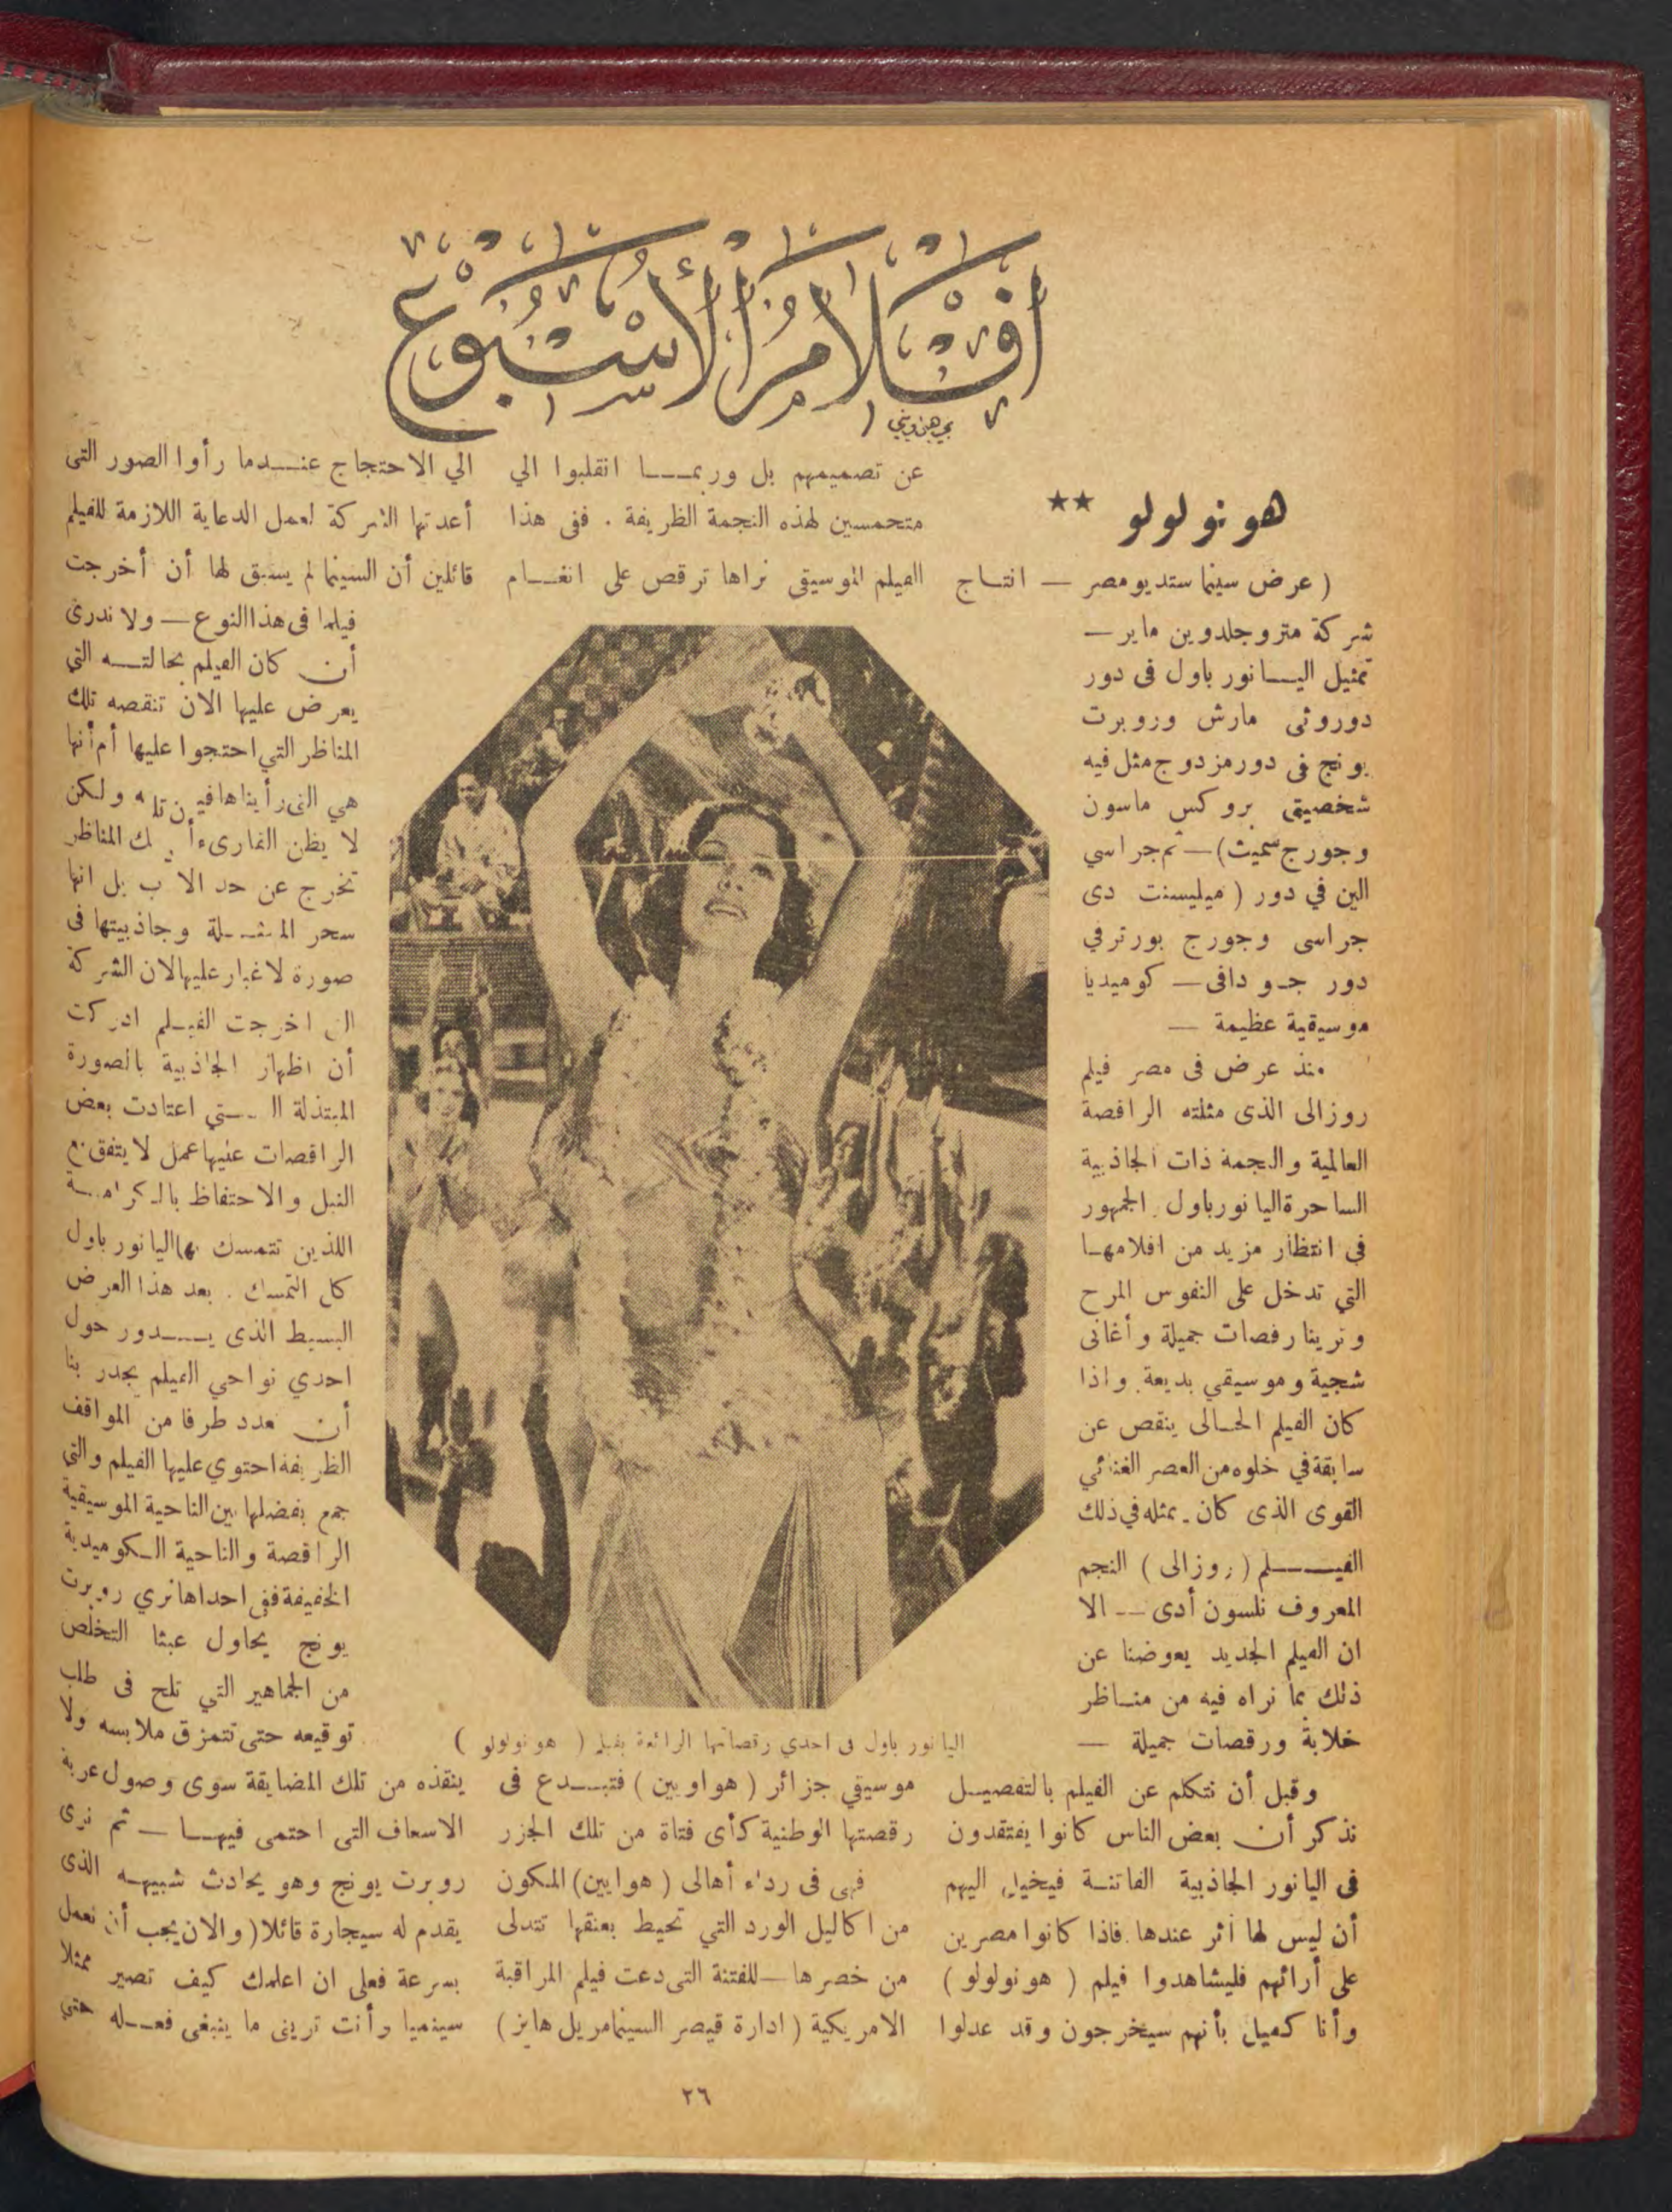 أفلام الأسبوع
هونولولو ★★
( عرض سينما ستديو مصر — انتاج
شركة مترو جلدوين ماير —
تمثيل اليـانور باول فى دور
دوروثى مارش وروبرت
يونج فى دور مزدوج مثل فيه
شخصيتى بروكس ماسون
وجورج سميث) — ثم جراسي
الين في دور ( ميليسنت دى
جراسى وجورج بورترفي
دور جو دافى — كوميديا
موسيقية عظيمة —
منذ عرض فى مصر فيلم
روزالى الذى مثلته الراقصة
العالمية والنجمة ذات الجاذبية
الساحرة اليانور باول . الجمهور
فى انتظار مزيد من افلامهـا
التي تدخل على النفوس المرح
وترينا رقصات جميلة وأغانى
شجية وموسيقي بديعة . واذا
كان الفيلم الحـالى ينقص عن
سابقة في خلوه من العصر الغنائي
القوى الذى كان يمثله في ذلك
الفيـــلم ( روزالى ) النجم
المعروف نلسون أدى — الا
ان الفيلم الجديد يعوضنا عن
ذلك بما نراه فيه من منـاظر
خلابة ورقصات جميلة —
وقبل أن نتكلم عن الفيلم بالتفصيـل
نذكر أن بعض الناس كانوا يفتقدون
فى اليانور الجاذبية الفاتنـة فيخيل اليهم
أن ليس لها أثر عندها . فاذا كانوا مصرين
على أرائهم فليشاهدوا فيلم ( هونولولو )
وأنا كفيل بأنهم سيخرجون وقد عدلوا
عن تصميمهم بل وربمـــا انقلبوا الي
متحمسين لهذه النجمة الظريفة . ففى هذا
الفيلم الموسيقى نراها ترقص على انغـام
اليانور باول فى احدي رقصاتها الرائعة بفيلم ( هونولولو )
موسيقي جزائر ( هواويين ) فتبـــدع فى
رقصتها الوطنية كأى فتاة من تلك الجزر
فهى فى رداء أهالى ( هوايين ) المكون
من اكاليل الورد التي تحيط بعنقها تتدلى
من خصرها — للفتنة التى دعت فيلم المراقبة
الامريكية ( ادارة قيصر السينما مريل هايز )
الي الاحتجاج عنـــدما رأوا الصور التى
أعدتها الشركة لعمل الدعاية اللازمة للفيلم
قائلين أن السينما لم يسبق لها أن أخرجت
فيلما فى هذا النوع — ولا ندرى
أن كان الفيلم بحالتـــه التي
يعرض عليها الان تنقصه تلك
المناظر التي احتجوا عليها أم أنها
هي التى رأيناها فيه ولكن
لا يظن القارىء المناظر
تخرج عن حد بل انها
سحر وجاذبيتها فى
صورة لا غبار عليها لان الشركة
اخرجت الفيـلم ادركت
أن اظهار الجاذبية بالصورة
المبتذلة الـــتي اعتادت بعض
الراقصات عليها عمل لا يتفق مع
النبل والاحتفاظ بالكرامـــة
اللذين تتمسك بها اليانور باول
كل التمسك . بعد هذا العرض
البسيط الذى يـــدور حول
احدي نواحي الفيلم يجدر بنا
أن نعدد طرفا من المواقف
الظريفة احتوي عليها الفيلم والتى
جمع بفضلها بين الناحية الموسيقية
الراقصة والناحية الكوميدية
الخفيفة ففى احداها نري روبرت
يونج يحاول عبثا التخلص
من الجماهير التي تلح فى طلب
توقيعه حتى تتمزق ملابسه ولا
ينقذه من تلك المضايقة سوى وصول عربة
الاسعاف التى احتمى فيهـــا — ثم نرى
روبرت يونج وهو يحادث شبيهـه الذى
يقدم له سيجارة قائلا ( والان يجب أن نعمل
بسرعة فعلى ان اعلمك كيف تصير ممثلا
سينميا وأنت ترينى ما ينبغى فعـــله حتى
٢٦